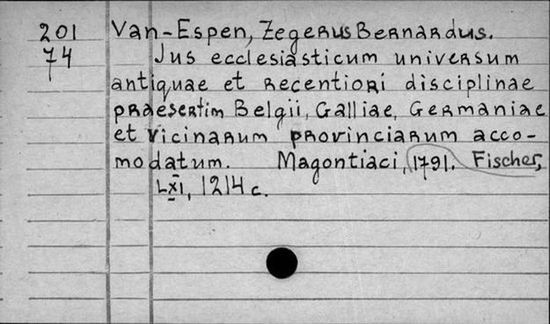 201 Van-Espen, Zegerus Bernardus.
74 Jus ecclesiasticum universum
antiquae et recentiori disciplinae
praesertim Belgii, Galliae, Germaniae
et vicinarum provinciarum acco-
modatum. Magontiaci, 1791. Fischer,
LXI, 1214 c.